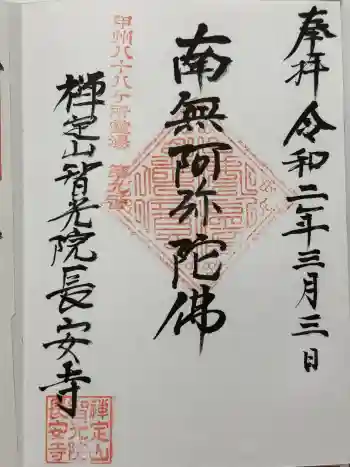 奉拝 令和二年三月三日
南無阿弥陀佛
甲州八十八ヶ所霊場 第九番
禅定山智光院長安寺
禅定山
智光院
長安寺